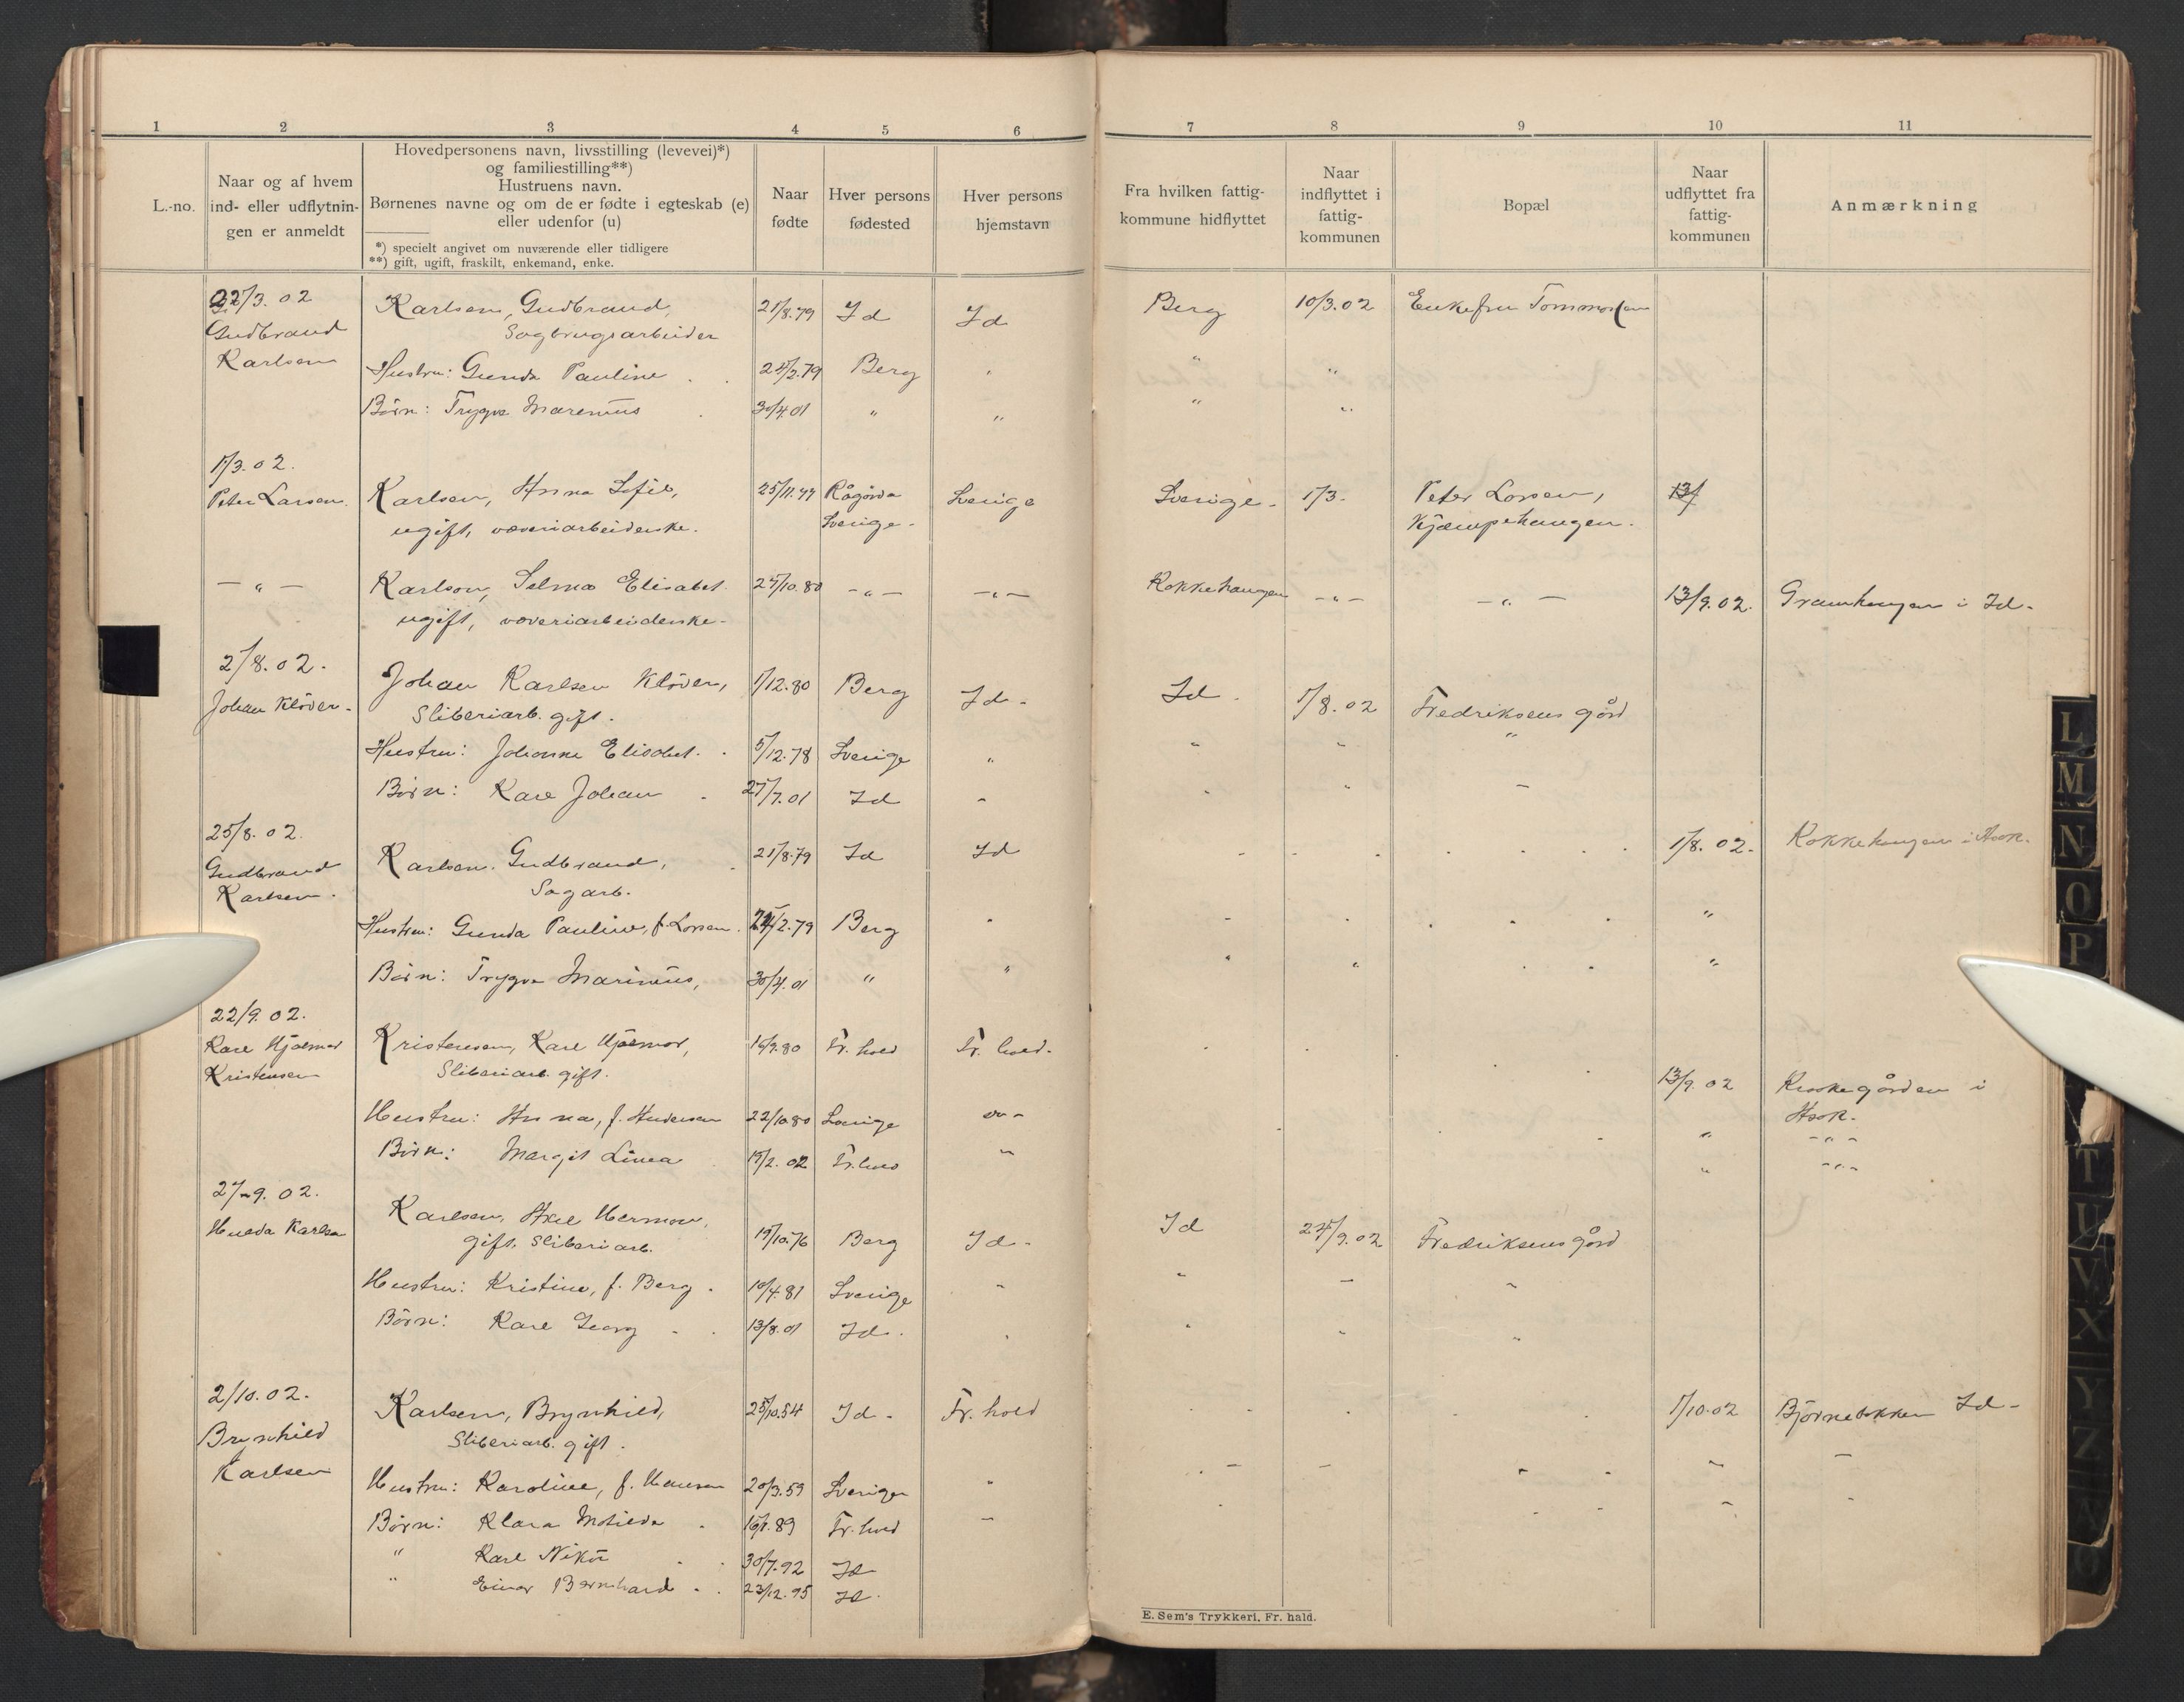 1 2 3 4 5 6 7 8 9 10 11
L.-no.
Naar og af hvem
ind- eller udflytnin-
gen er anmeldt
Hovedpersonens navn, livsstilling (levevei)*)
og familiestilling**)
Hustruens navn.
Børnenes navne og om de er fødte i egteskab (e)
eller udenfor (u)
*) specielt angivet om nuværende eller tidligere
**) gift, ugift, fraskilt, enkemand, enke.
Naar
fødte
Hver persons
fødested
Hver persons
hjemstavn
Fra hvilken fattig-
kommune hidflyttet
Naar
indflyttet i
fattig-
kommunen
Bopæl
Naar
udflyttet fra
fattig-
kommunen
Anmærkning
22/3.02 Karlsen, Gudbrand, 21/8.79 Id Id Berg 10/3.02 Enkefru
Gudbrand Sagbrugsarbeider
Karlsen Hustru: Gunda Pauline 24/2.79 Berg " " "
Børn: Trygve Marenius 30/4.01 " " " "
1/3.02.
Peter Larsen. Karlsen, Anna Sofie, 25/11.77 Sverige Sverige - 1/3- Peter Larsen, 13/
ugift, væveriarbeiderske. Sverige - Kjæmpehaugen.
— " — Karlson, Selma Elisabet. 24/10.80 — " — — " — Kokkehaugen — " — — " — 13/9.02. i Id -
ugift, væveriarbeiderske -
2/8.02.
Johan Klöver - Johan Karlsen Klöver, 1/12.80 Berg Id - Id - 1/8.02 Fredriksens gård
Sliberiarb. gift.
Hustru: Johanne Elisabet. 5/12.78 Sverige " " " "
Börn: Karl Johan 27/7.01 Id " " " "
25/8.02.
Gudbrand Karlsen. Gudbrand, 21/8.79 Id Id 1/8.02. Kokkehaugen i Ask.
Karlsen. Sagarb.
Hustru: Gunda Pauline, f. Larsen. 24/2.79 Berg " "
Börn: Trygve Marinius, 30/4.01 " " " " "
22/9.02.
Karl Hjalmar Kristensen, Karl Hjalmar, 16/9.80 Fr. hald Fr. hald.
Kristensen Sliberiarb. gift. 13/9.02 i
Hustru: Anna, f. Andersen 22/10.80 Sverige Ask.
Börn: Margit Linea 15/2.02 Fr. hald " " - " -
27-9.02.
Hulda Karlsen Karlsen, Axel Herman, 19/10.76 Berg Id - Id 24/9.02 Fredriksens gård
gift. Sliberiarb.
Hustru: Kristine, f. Berg. 10/4.81 Sverige " " — "
Börn: Karl Georg 13/8.01 Id. " " "
2/10.02.
Brynhild Karlsen, Brynhild, 25/10.54 Id - Fr. hald 1/10.02 Björnebekken Id -
Karlsen Sliberiarb. gift.
Hustru: Karoline, f. Hansen 20/3.59 Sverige " " —
Börn: Klara Matilda 16/1.89 Fr. hald " "
" Karl 30/7.92 Id
" Einar Bernhard 23/12.95 Id.
E. Sem's Trykkeri, Fr. hald.
L
M
N
O
P
T
U
V
X
Y
Z